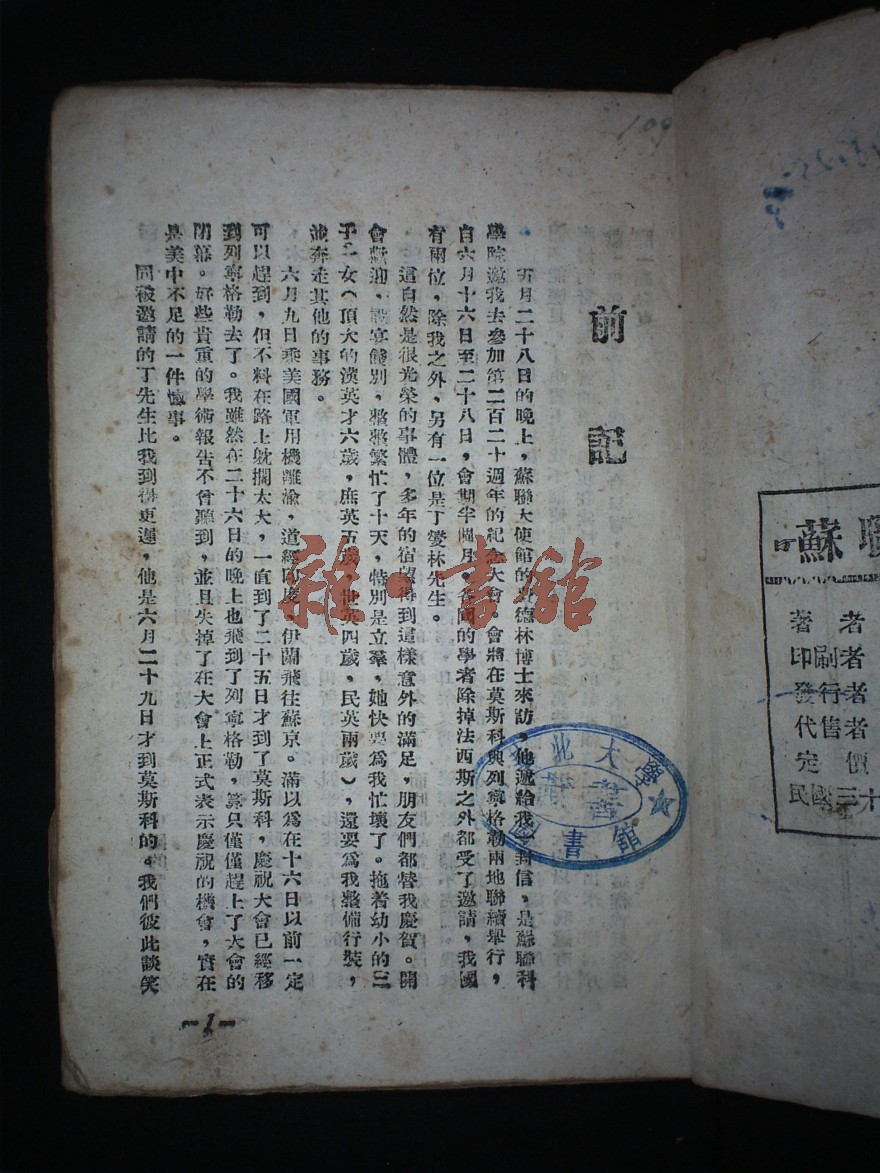 前記
五月二十八日的晚上,蘇聯大使館的費德林博士來訪,他遞給我一封信,是蘇聯科
學院邀我去參加第二百二十週年的紀念大會。會將在莫斯科與列寧格勒兩地聯續舉行,
自六月十六日至二十八日,會期半個月。各國的學者除掉法西斯之外都受了邀請,我國
有兩位,除我之外,另有一位是丁燮林先生。
這自然是很光榮的事體,多年的宿望得到這樣意外的滿足,朋友們都替我慶賀。開
會歡迎,設宴餞別,整整繁忙了十天,特別是立羣,她快要為我忙壞了。拖着幼小的三
子一女(頂大的漢英才六歲,庶英五歲,世英四歲,民英兩歲),還要為我整備行裝,
並奔走其他的事務。
六月九日乘美國軍用機離渝,道經印度、伊蘭飛往蘇京。滿以為在十六日以前一定
可以趕到,但不料在路上躭擱太大,一直到了二十五日才到了莫斯科,慶祝大會已經移
到列寧格勒去了。我雖然在二十六日的晚上也飛到了列寧格勒,算只僅僅趕上了大會的
閉幕。好些貴重的學術報告不曾聽到,並且失掉了在大會上正式表示慶祝的機會,實在
是美中不足的一件憾事。
同被邀請的丁先生比我到得更遲,他是六月二十九日才到莫斯科的。我們彼此談笑
-1-
109
雜·書館
北大學
圖書館
藏書
蘇聯
著者
印刷者
發行者
代售者
定價
民國三十